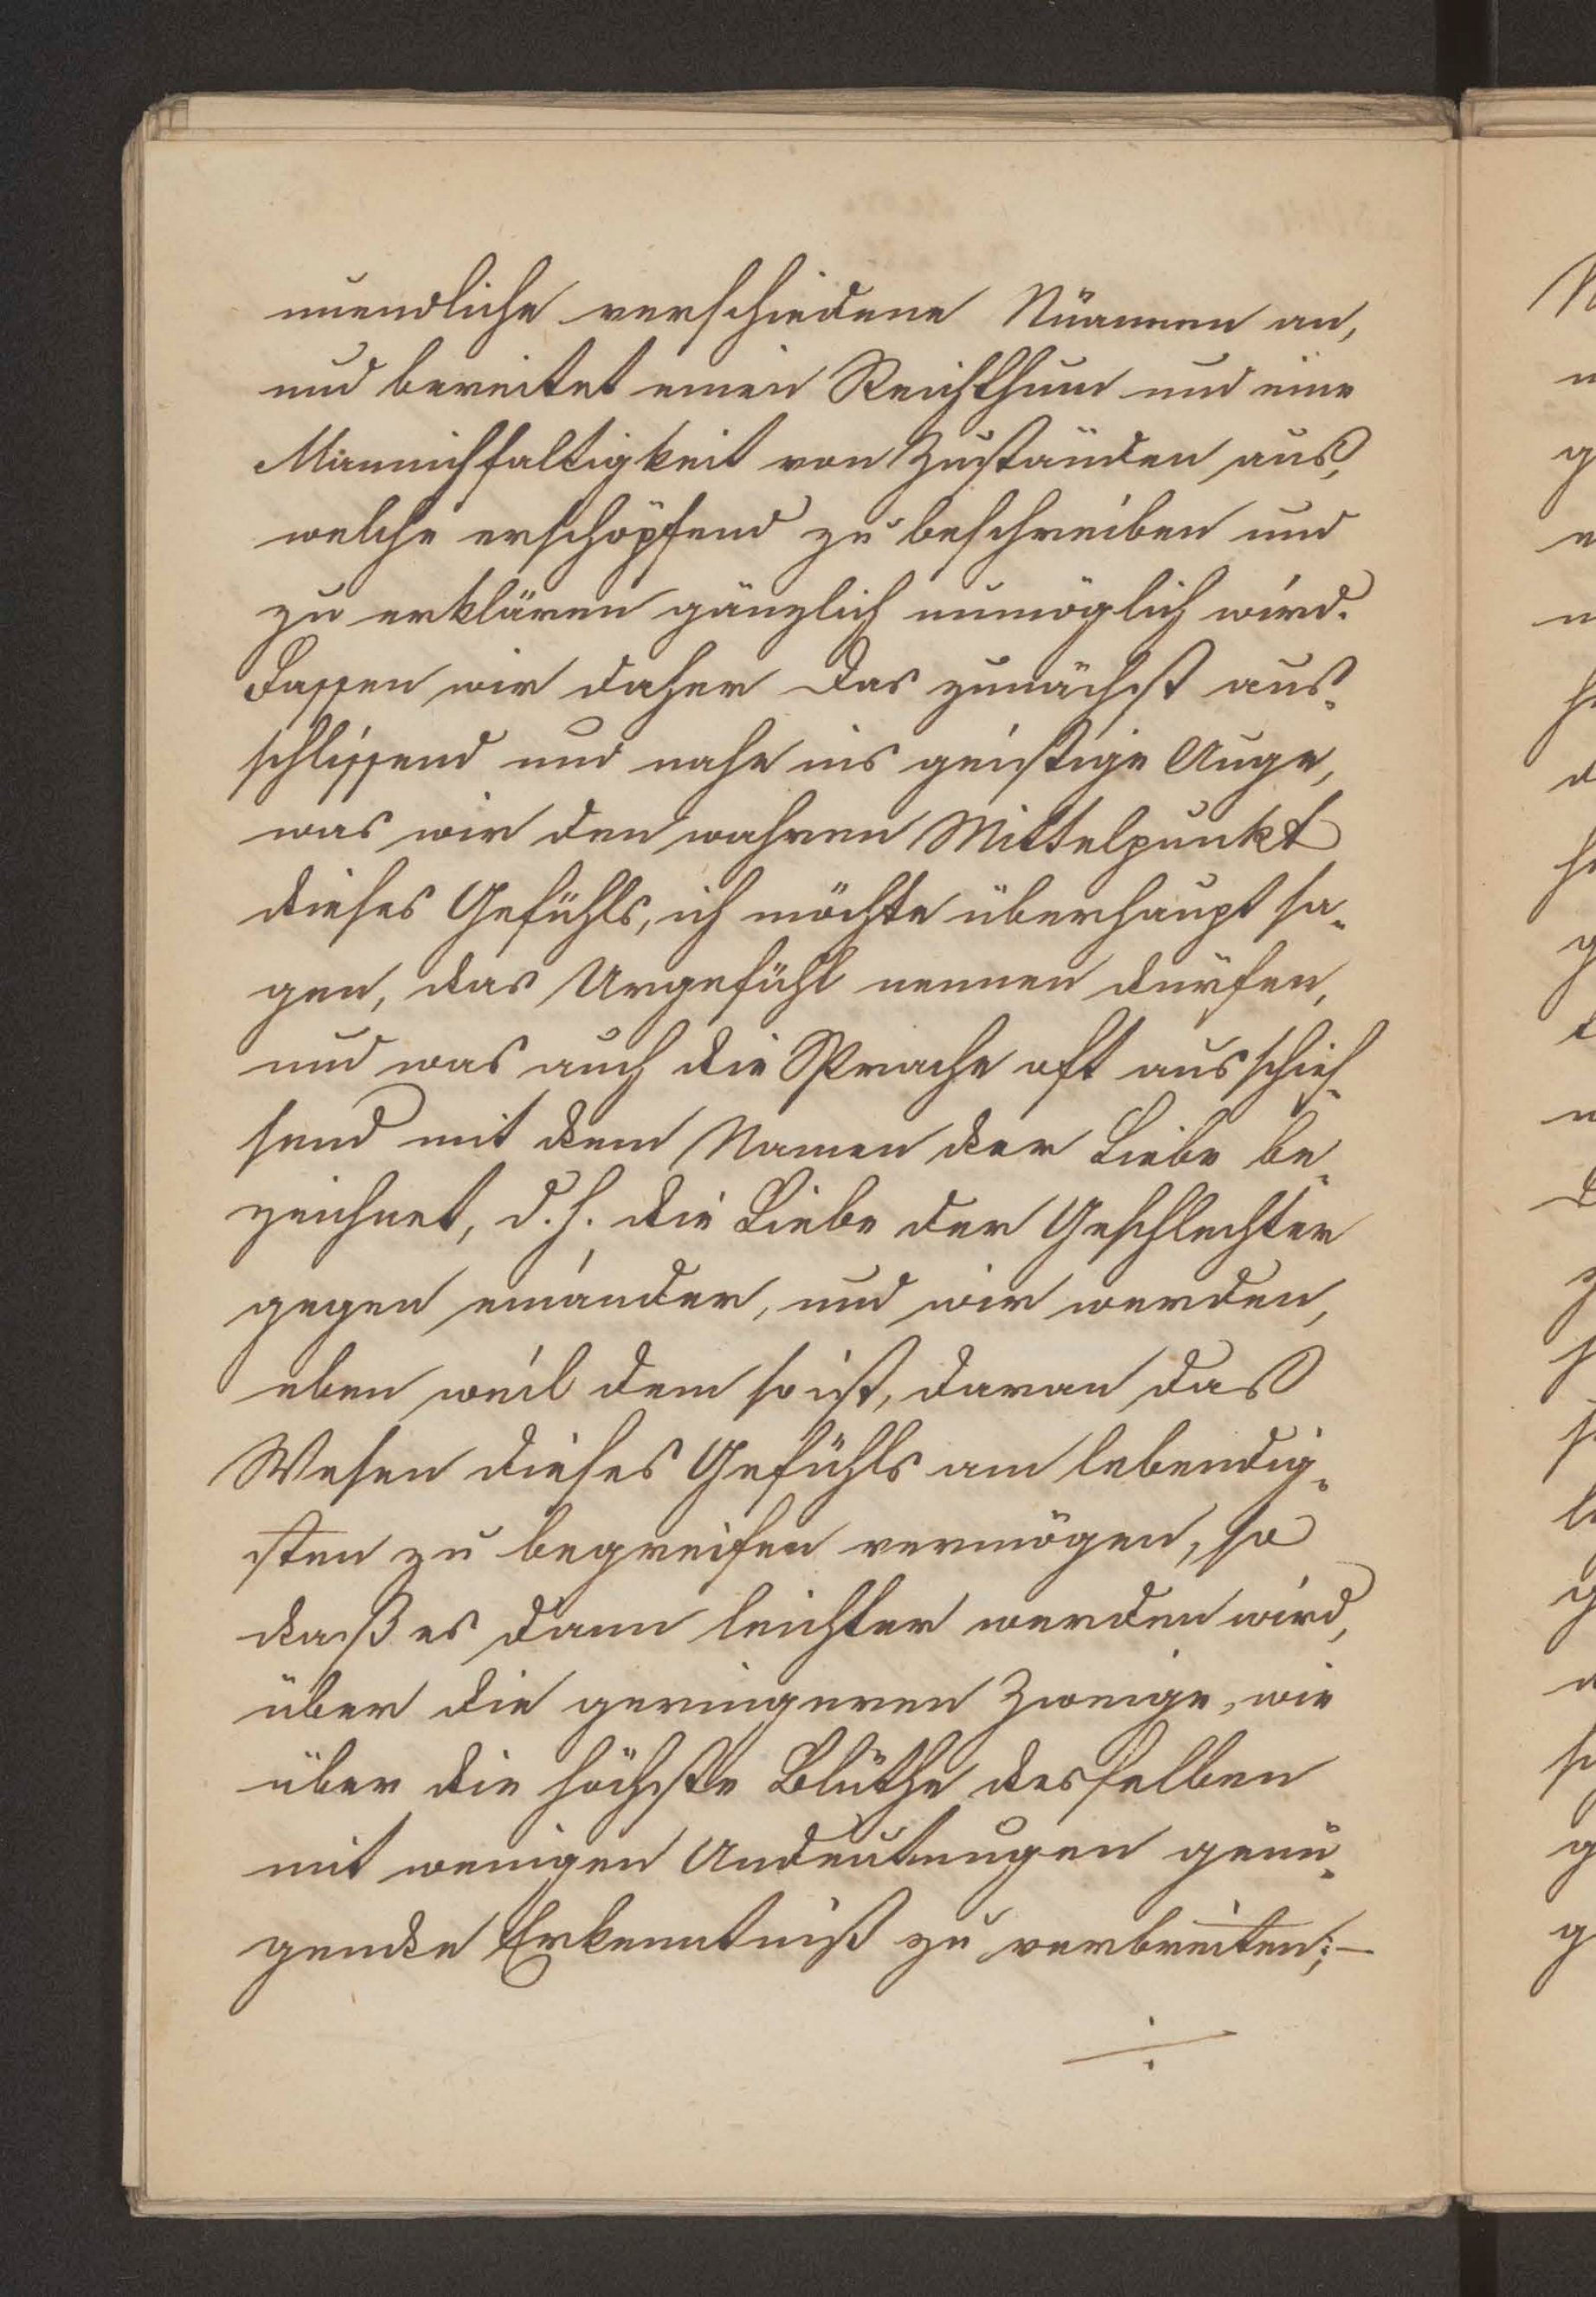 unendliche verschiedene Nüancen an,
und bereitet einen Reichthum und eine
Mannichfaltigkeit von Zuständen aus,
welche erschöpfend zu beschreiben und
zu erklären gänzlich unmöglich wird.
Fassen wir daher das zunächst aus-
schlissend und nahe ins geistige Auge,
was wir den wahren Mittelpunkt
dieses Gefühls, ich möchte überhaupt sa-
gen, das Urgefühl nennen dürfen,
und was auch die Sprache oft ausschies-
send mit dem Namen der Liebe be-
zeichnet, d. h. die Liebe der Geschlechter
gegen einander, und wir werden,
eben weil dem so ist, daran das
Wesen dieses Gefühls am lebendig-
sten zu begreifen vermögen, so
daß es dann leichter werden wird,
über die geringeren Zweige, wie
über die höchste Blüthe desselben
mit wenigen Andeutungen genü-
gende Erkenntniß zu verbreiten; –